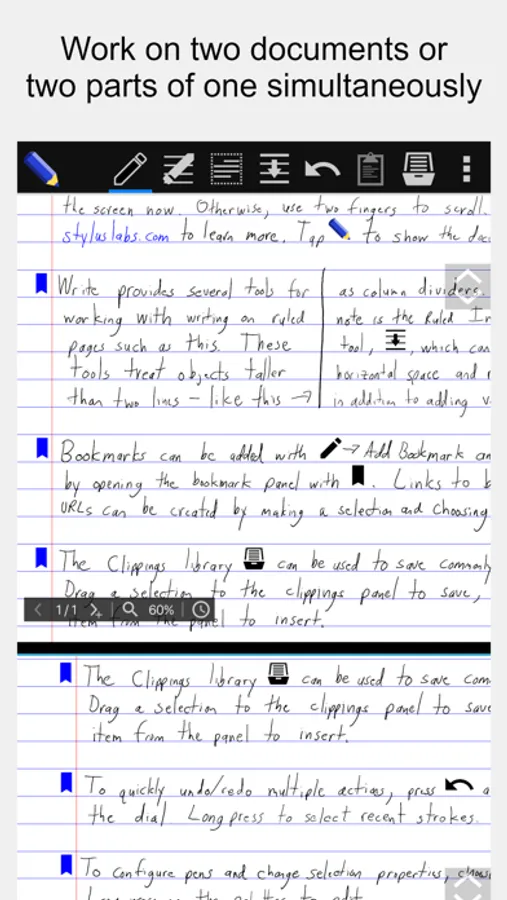 Work on two documents or
two parts of one simultaneously
the screen now. Otherwise, use two fingers to scroll.
styluslabs.com to learn more. Tap to show the doc
Write provides several tools for
working with writing on ruled
pages such as this. These
tools treat objects taller
than two lines - like this →
as column dividers.
note is the Ruled In
tool, , which can
horizontal space and
in addition to adding v
Bookmarks can be added with → Add Bookmark an
by opening the bookmark panel with . Links to b
URLs can be created by making a selection and choosing
The Clippings library can be used to save commonly
Drag a selection to the clippings panel to save,
item from the panel to insert.
1/1 60%
The Clippings library can be used to save com
Drag a selection to the clippings panel to save
item from the panel to insert.
To quickly undo/redo multiple actions, press a
the dial. Long press to select recent strokes.
To configure pens and change selection properties, choos